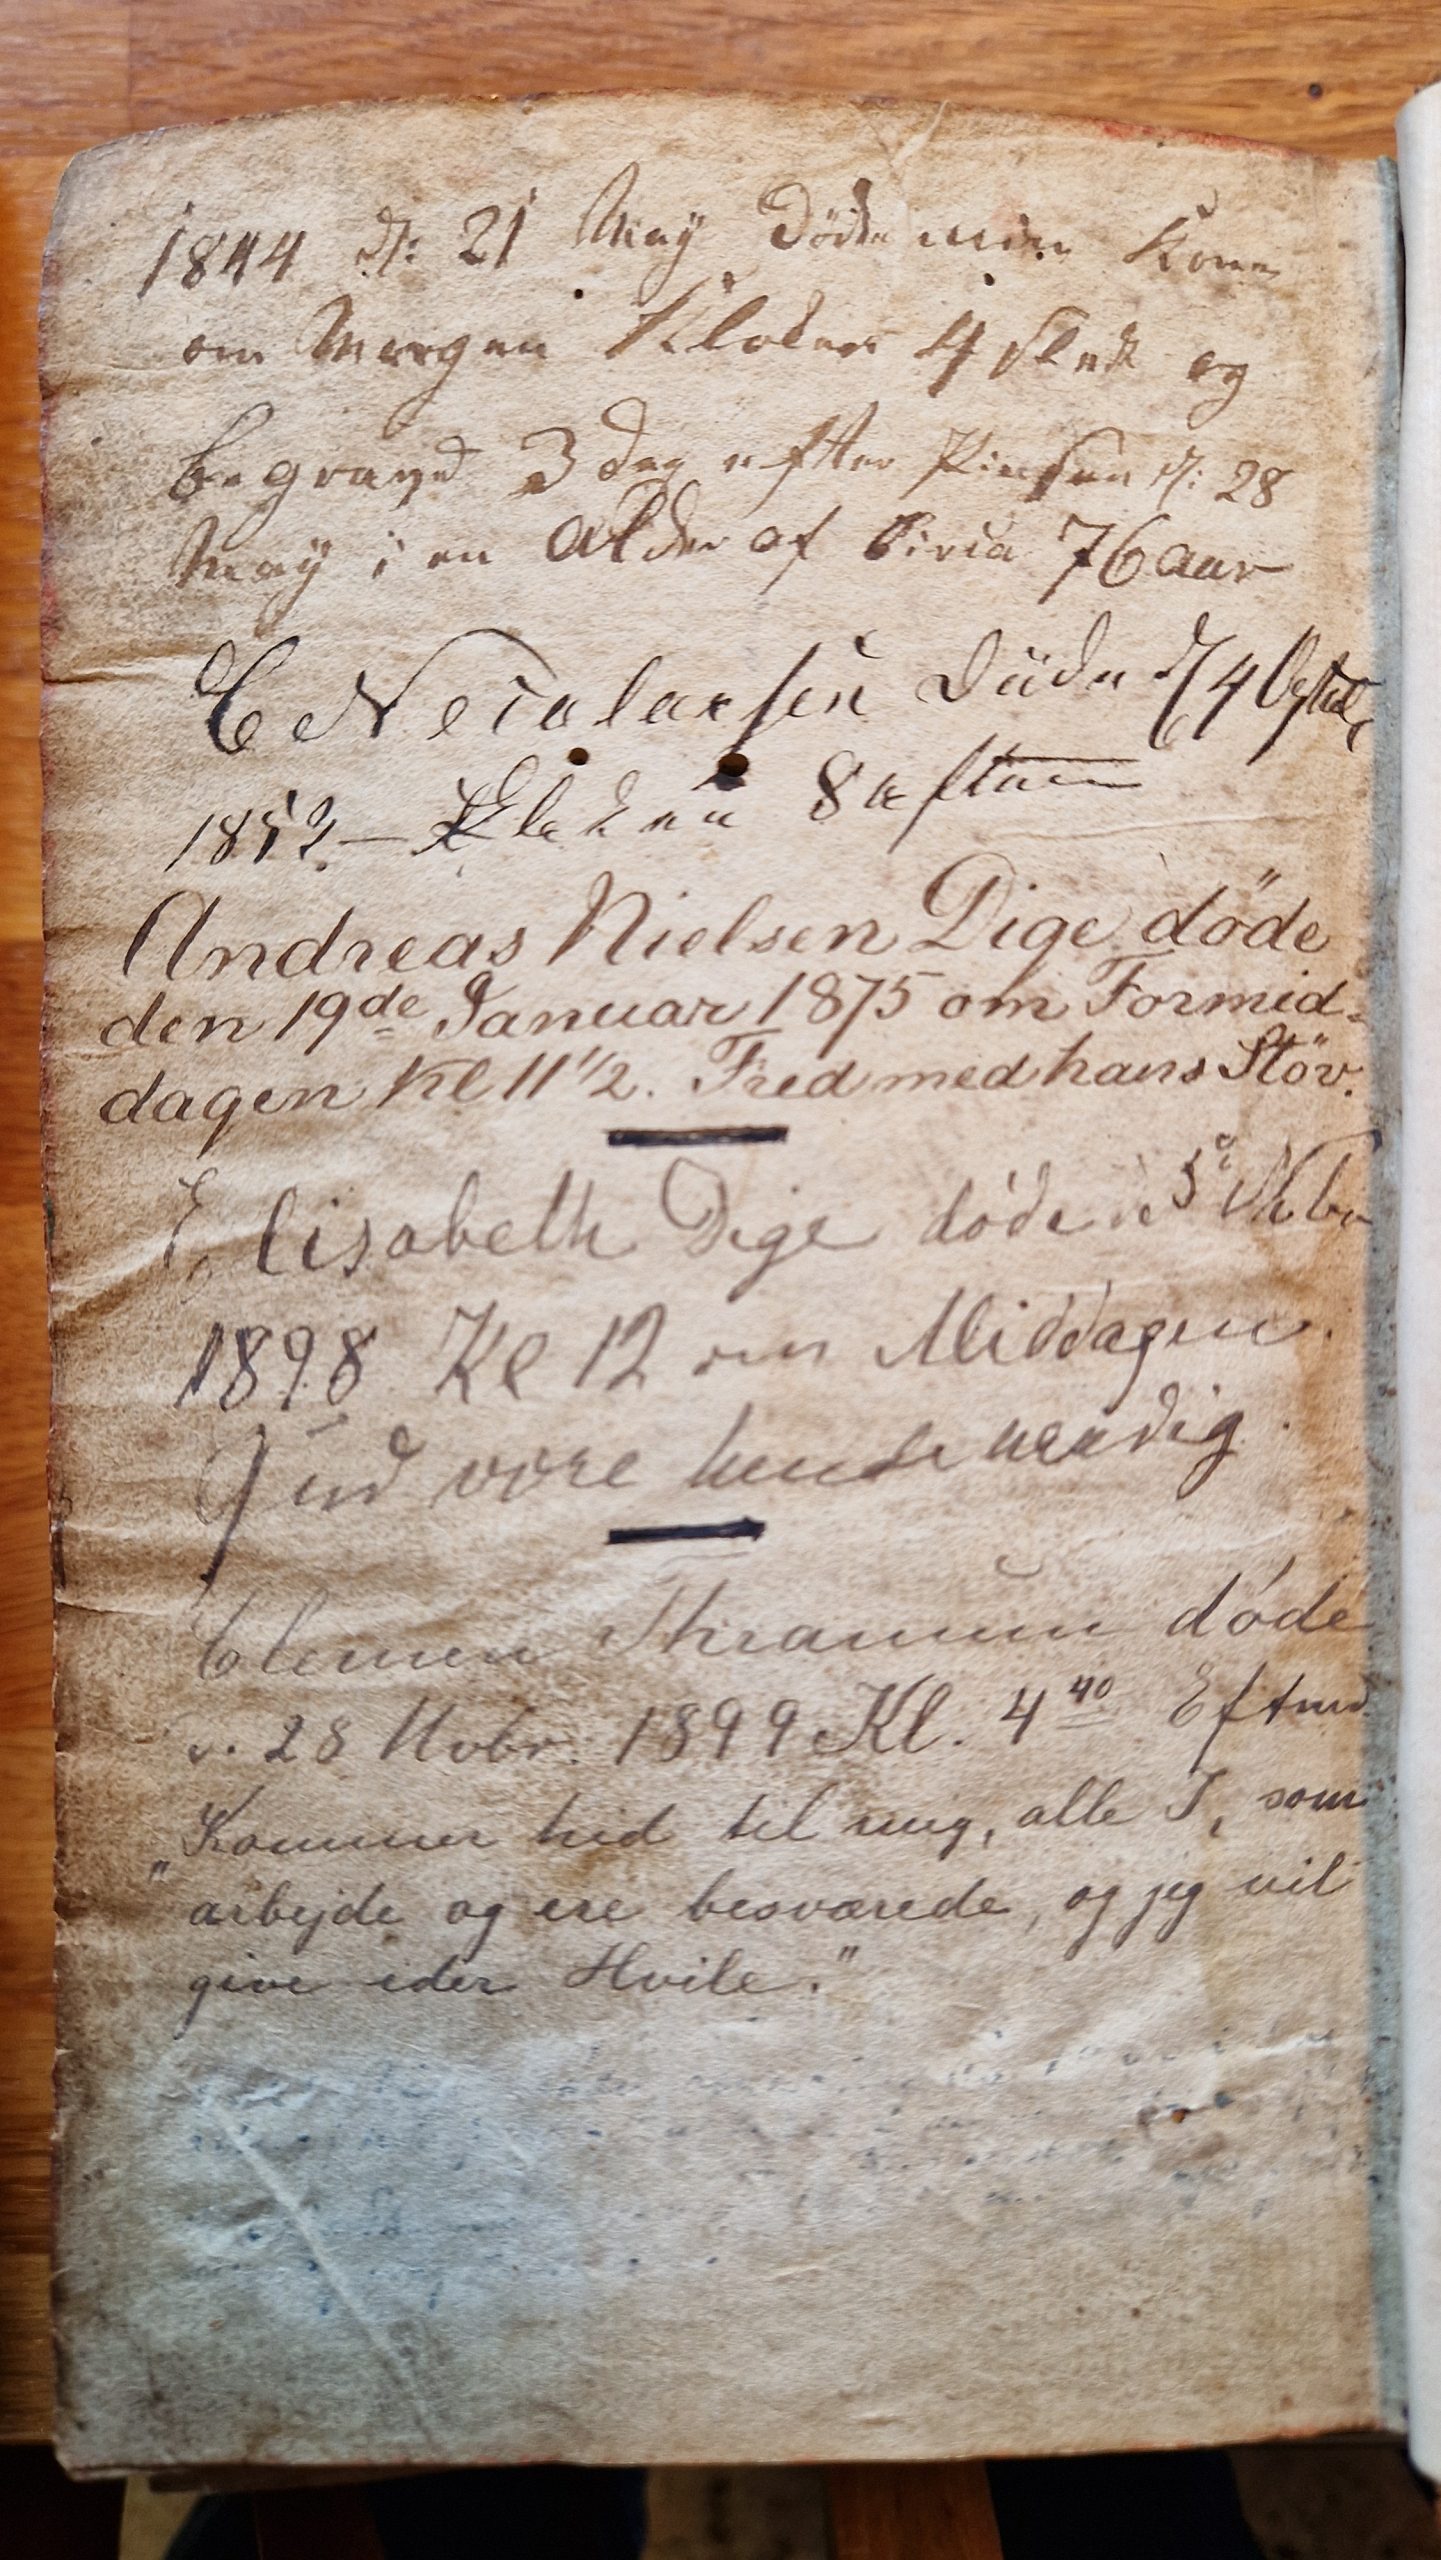 1844 d: 21 May døde min Kone
om Morgen Klocken 4 slet og
begraved 3 dag efter Pinsen d: 28
May i en Alder af Circa 76 aar
C Nicolaisen düde d 4
1852 – Klocken 8 aften
Andreas Nielsen Dige døde
den 19de Januar 1875 om Formid=
dagen Kl 11 1/2. Fred med hans Støv.
Elisabeth Dige døde d 5
1898 Kl 12 om Middagen.
Gud være hende naadig
Clemen Thramum døde
d. 28 Novbr. 1899 Kl. 4 40 Eftmd.
"Kommer hid til mig, alle I, som
arbejde og ere besværede, og jeg vil
give eder Hvile."